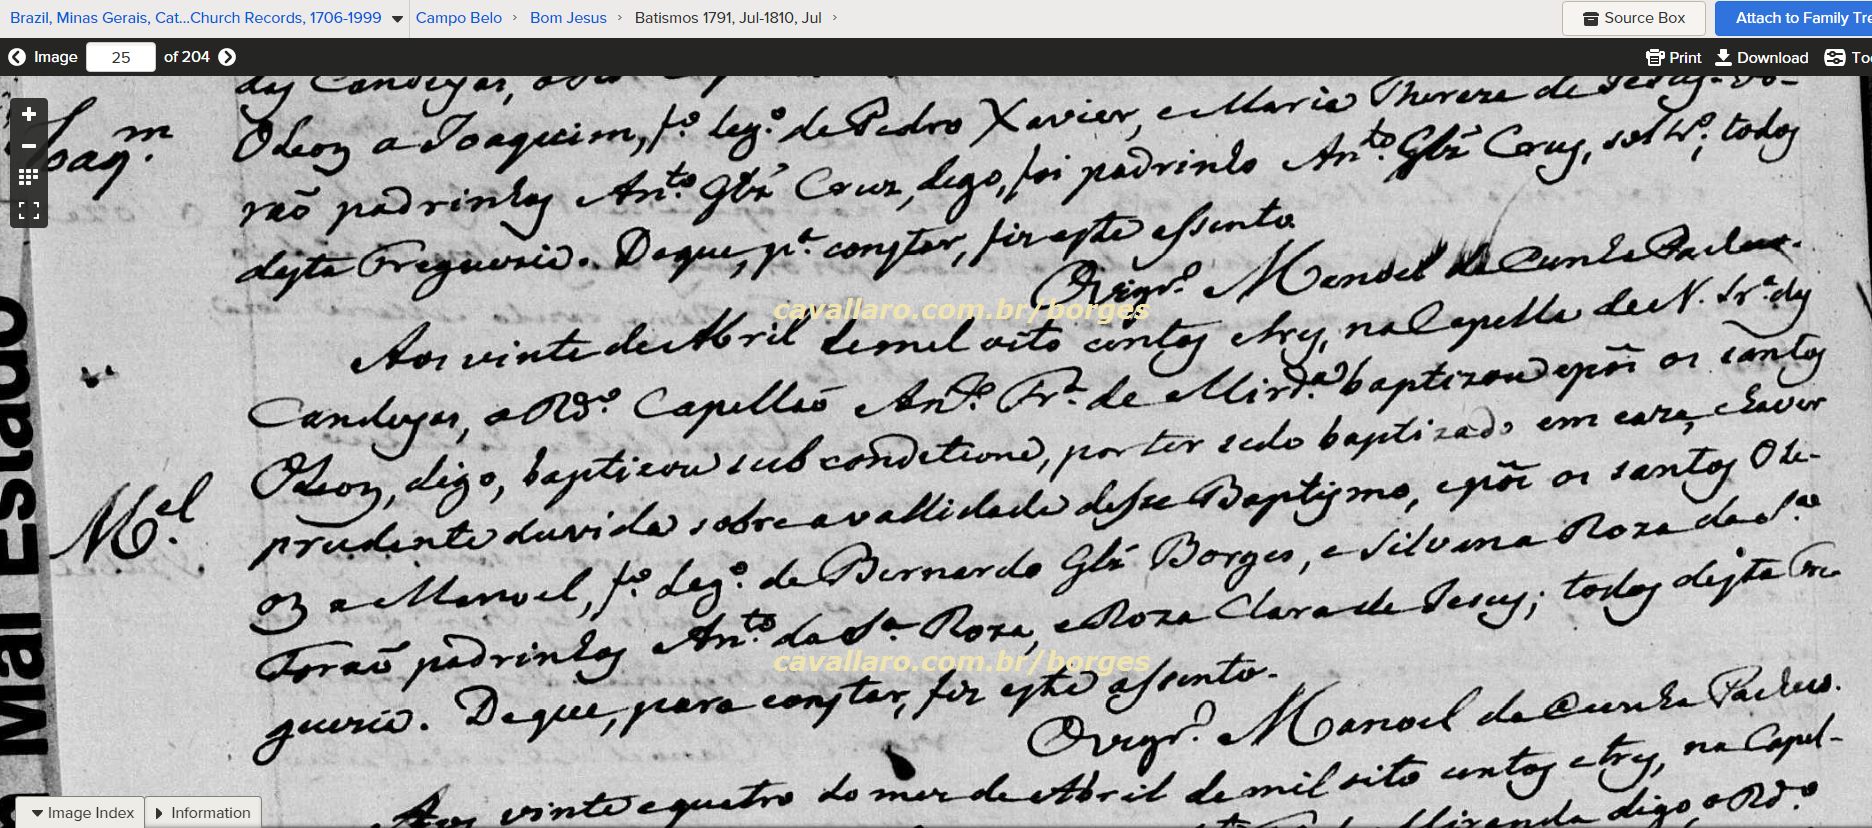 Brazil, Minas Gerais, Cat...Church Records, 1706-1999 Campo Belo Bom Jesus Batismos 1791, Jul-1810, Jul
Source Box
Attach to Family Tre
Image 25 of 204
Print Download Too
das Candeyas, o
Joaqm.
Oleos a Joaquim, fo. lego. de Pedro Xavier, e Maria Thereza de Jesus. Fo-
rão padrinhos Anto. Glz' Cruz, digo, foi padrinho Anto. Glz' Cruz, soltro; todos
desta Freguezia. De que, pa. constar, fiz este assento.
O vigro. Manoel da Cunha Pacheco.
cavallaro.com.br/borges
Aos vinte de Abril de mil oito centos e tres, na Capella de N. Sra. das
Candeyas, o Rdo. Capellão Anto. Fra. de Mirda. baptizou e pôz os santos
Oleos, digo, baptizou sub conditione, por ter sido baptizado em caza, e haver
Mel.
prudente duvida sobre a vallidade desse Baptismo, e pôz os santos Ole-
os a Manoel, fo. lego. de Bernardo Glz' Borges, e Silvina Roza da Sa.
Forão padrinhos Anto. da Sa. Roza, e Roza Clara de Jesus; todos desta Fre
cavallaro.com.br/borges
guezia. De que, para constar, fiz este assento.
O vigro. Manoel da Cunha Pacheco.
Aos vinte e quatro do mez de Abril de mil oito centos e tres, na Capel-
Miranda digo, o Rdo.
Image Index Information
Mal Estado